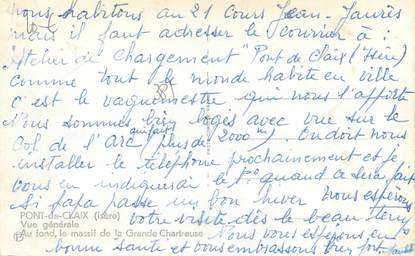 nous habitons au 21 Cours Jean-Jaurès
mais il faut adresser le courrier à :
Atelier de Chargement "Pont de Claix (Isère)
comme tout le monde habite en ville
c'est le vaguemestre qui nous l'apporte
Nous sommes bien logés avec vue sur le
Col de l'Arc qui fait (plus de 2000m) On doit nous
installer le téléphone prochainement et je
vous en indiquerai le No quand ce sera fait
Si papa passe un bon hiver nous espérons
PONT-de-CLAIX (Isère)
votre visite dès le beau temps
Vue générale
Au fond, le massif de la Grande Chartreuse
Nous vous espérons en
bonne santé et vous embrassons très fort